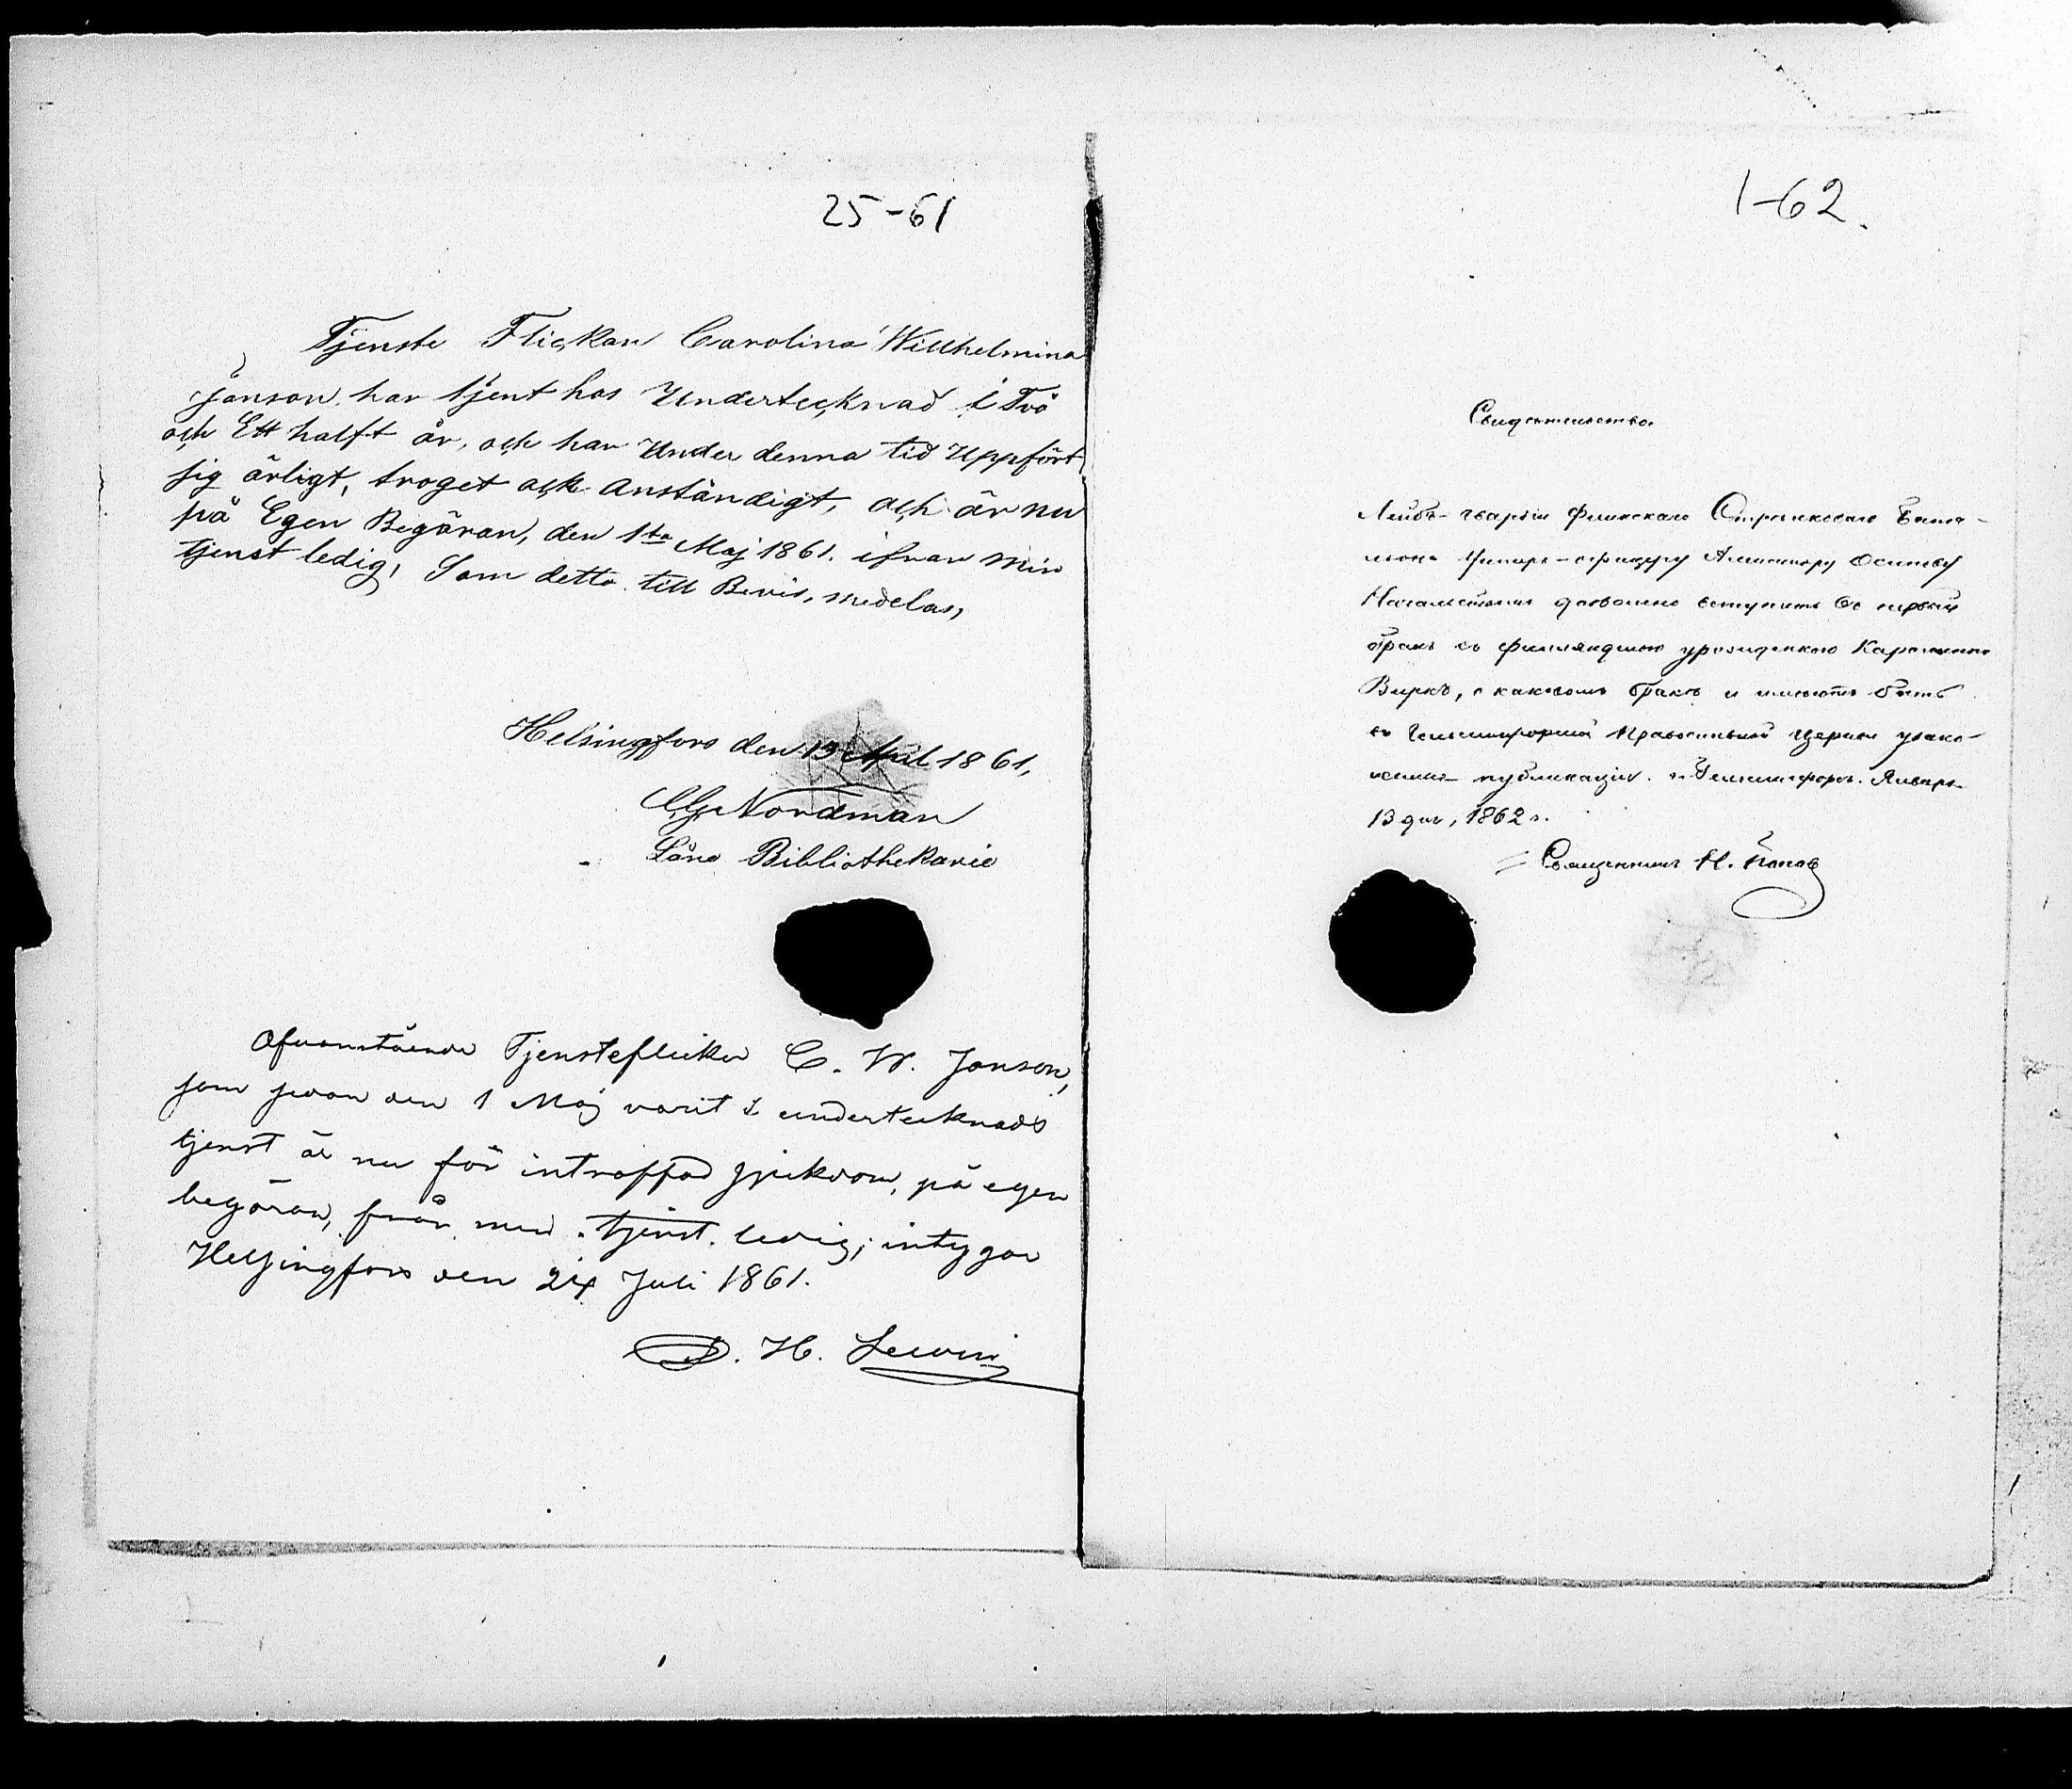 25-61
Tjenste Flickan Carolina Willhelmina
Janson, har tjent hos Undertecknad i Två
och Ett halft år, och har Under denna tid Uppfört
sig ärligt, troget och anständigt, och är nu
på Egen Begäran, den 1sta Maj 1861. ifrån min
tjenst ledig, Som detta till Bevis, medelas,
Helsingfors den 13 April 1861,
Nordman
Låne Bibliothekarie
Ofvanstående Tjensteflicka C. W. Janson,
som sedan den 1 Maj varit i undertecknads
tjenst är nu för inträffad sjukdom, på egen
begäran, från min tjenst ledig; intygar
Helsingfors den 24 Juli 1861.
D. H. Lewin
1-62.
Свидетельство.
Лейбъ-гвардіи Финскаго Стрѣлковаго Бата-
лiона Унтеръ-офицеру Осипову
дозволено вступить въ первый
бракъ съ финляндскою уроженкою
Виркъ, о каковомъ бракѣ и имѣютъ быть
въ Гельсингфорской Православной Церкви узако-
ненныя публикаціи. г. Гельсингфорсъ. Января
13 дня, 1862 г.
Священникъ Н. Поповъ